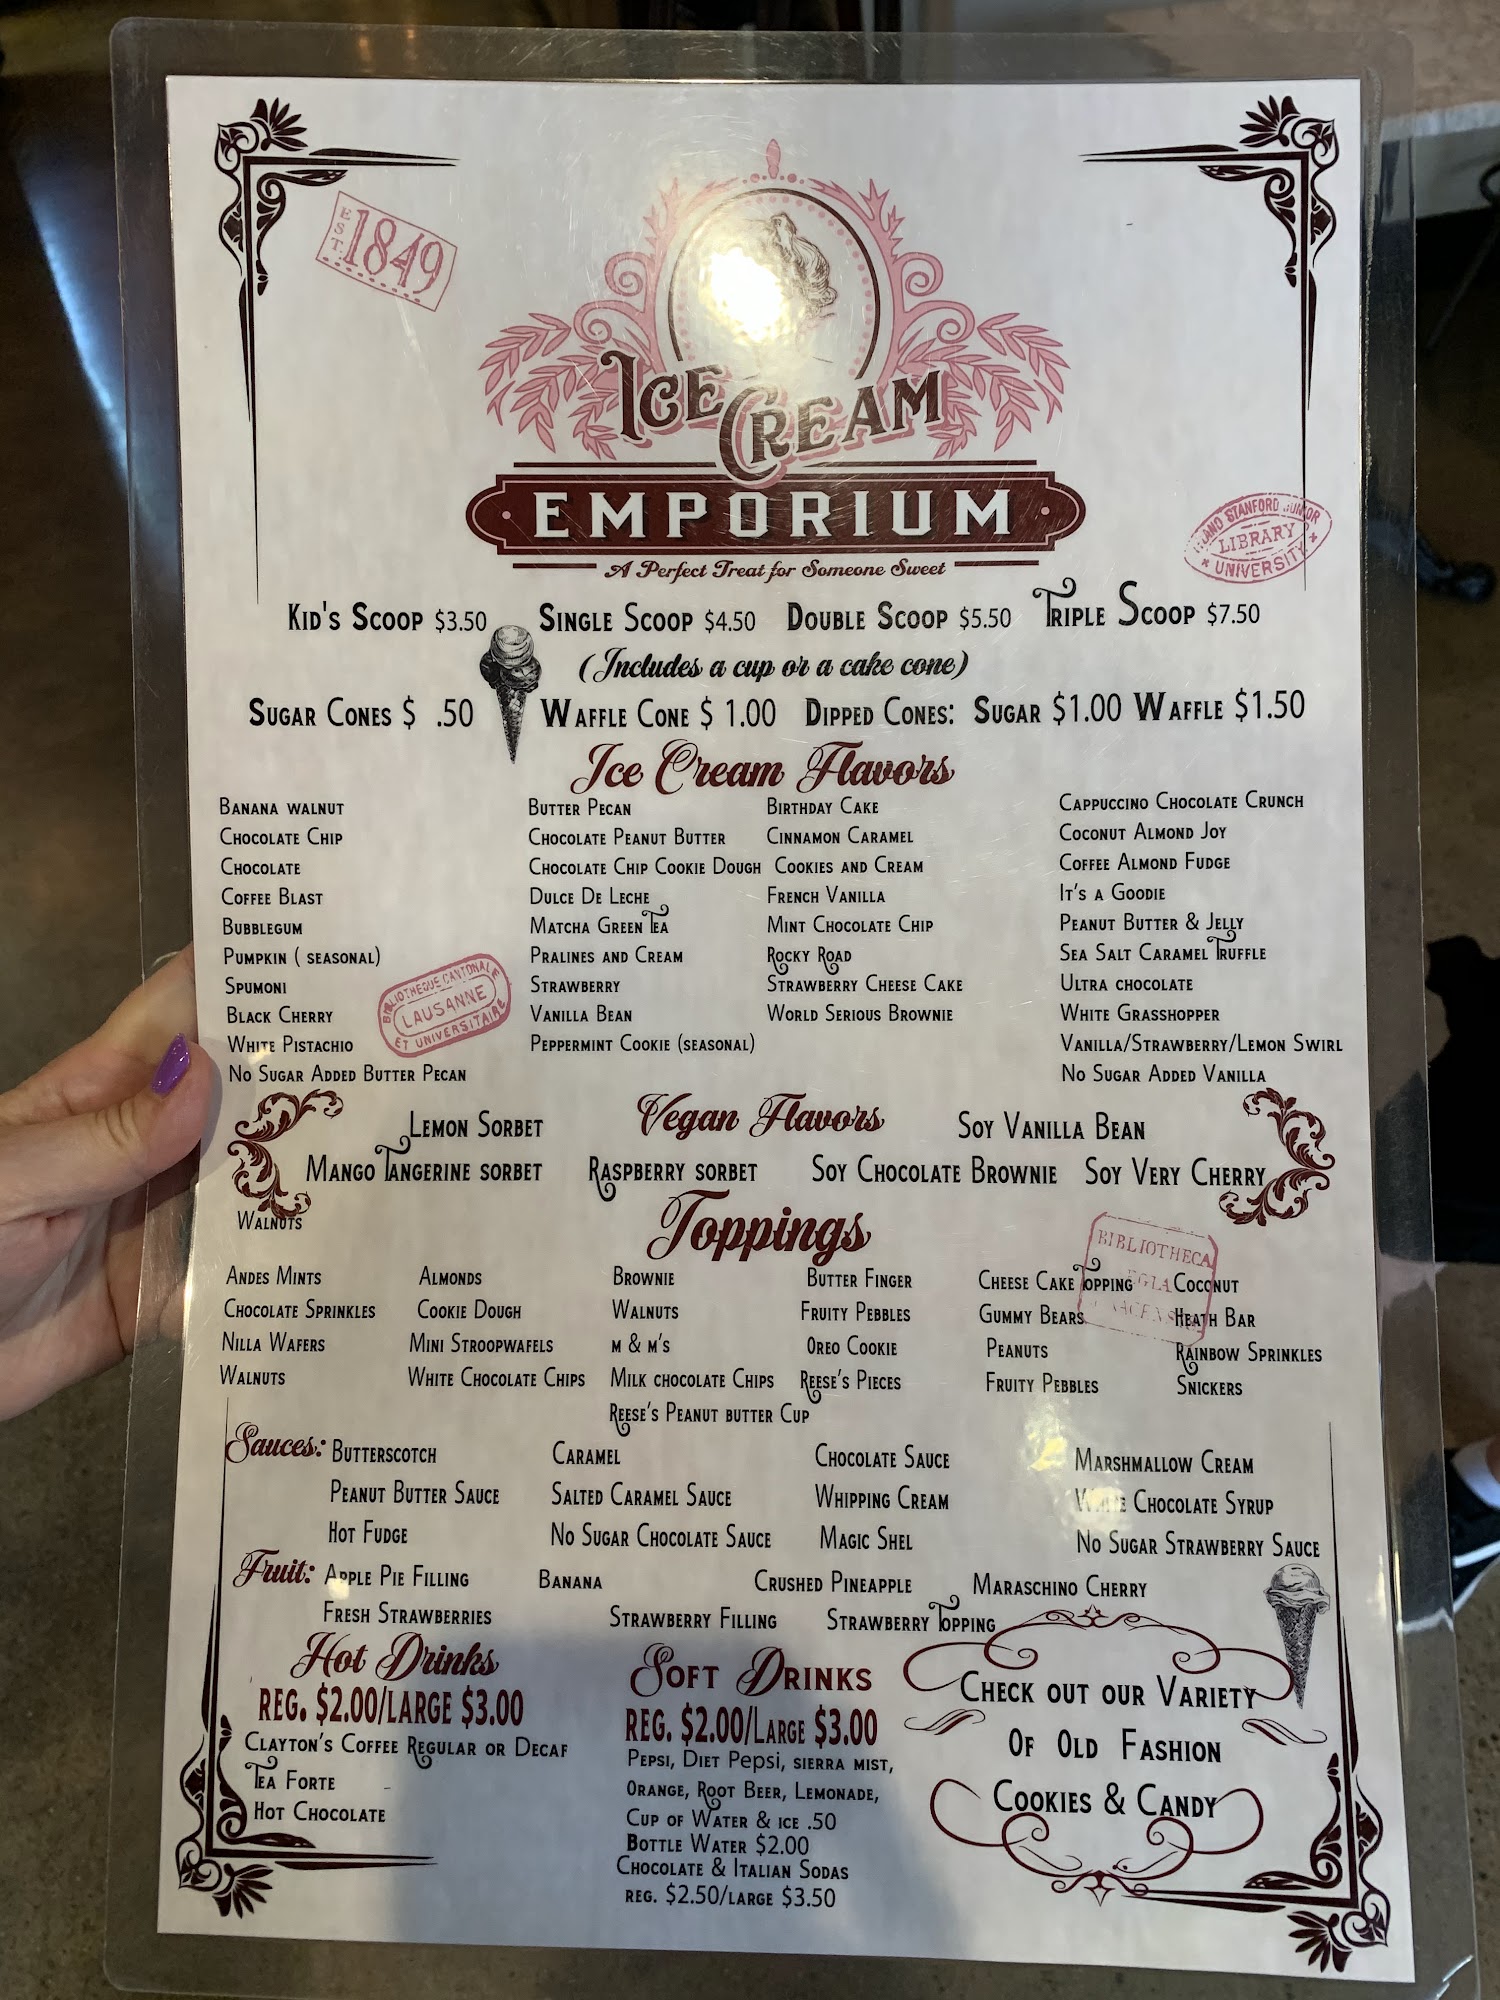 EST. 1849
ICE CREAM
EMPORIUM
A Perfect Treat for Someone Sweet
STANFORD JUNIOR
LIBRARY
UNIVERSITY
KID'S SCOOP $3.50 SINGLE SCOOP $4.50 DOUBLE SCOOP $5.50 TRIPLE SCOOP $7.50
(Includes a cup or a cake cone)
SUGAR CONES $ .50 WAFFLE CONE $ 1.00 DIPPED CONES: SUGAR $1.00 WAFFLE $1.50
Ice Cream Flavors
BANANA WALNUT
CHOCOLATE CHIP
CHOCOLATE
COFFEE BLAST
BUBBLEGUM
PUMPKIN ( SEASONAL)
SPUMONI
BLACK CHERRY
WHITE PISTACHIO
NO SUGAR ADDED BUTTER PECAN
BUTTER PECAN
CHOCOLATE PEANUT BUTTER
CHOCOLATE CHIP COOKIE DOUGH
DULCE DE LECHE
MATCHA GREEN TEA
PRALINES AND CREAM
STRAWBERRY
VANILLA BEAN
PEPPERMINT COOKIE (SEASONAL)
BIRTHDAY CAKE
CINNAMON CARAMEL
COOKIES AND CREAM
FRENCH VANILLA
MINT CHOCOLATE CHIP
ROCKY ROAD
STRAWBERRY CHEESE CAKE
WORLD SERIOUS BROWNIE
CAPPUCCINO CHOCOLATE CRUNCH
COCONUT ALMOND JOY
COFFEE ALMOND FUDGE
IT'S A GOODIE
PEANUT BUTTER & JELLY
SEA SALT CARAMEL TRUFFLE
ULTRA CHOCOLATE
WHITE GRASSHOPPER
VANILLA/STRAWBERRY/LEMON SWIRL
NO SUGAR ADDED VANILLA
BIBLIOTHEQUE CANTONALE
LAUSANNE
ET UNIVERSITAIRE
Vegan Flavors
LEMON SORBET SOY VANILLA BEAN
MANGO TANGERINE SORBET RASPBERRY SORBET SOY CHOCOLATE BROWNIE SOY VERY CHERRY
Toppings
WALNUTS
BIBLIOTHECA
ANDES MINTS ALMONDS BROWNIE BUTTER FINGER CHEESE CAKE TOPPING COCONUT
CHOCOLATE SPRINKLES COOKIE DOUGH WALNUTS FRUITY PEBBLES GUMMY BEARS HEATH BAR
NILLA WAFERS MINI STROOPWAFELS M & M'S OREO COOKIE PEANUTS RAINBOW SPRINKLES
WALNUTS WHITE CHOCOLATE CHIPS MILK CHOCOLATE CHIPS REESE'S PIECES FRUITY PEBBLES SNICKERS
REESE'S PEANUT BUTTER CUP
Sauces: BUTTERSCOTCH CARAMEL CHOCOLATE SAUCE MARSHMALLOW CREAM
PEANUT BUTTER SAUCE SALTED CARAMEL SAUCE WHIPPING CREAM WHITE CHOCOLATE SYRUP
HOT FUDGE NO SUGAR CHOCOLATE SAUCE MAGIC SHEL NO SUGAR STRAWBERRY SAUCE
Fruit: APPLE PIE FILLING BANANA CRUSHED PINEAPPLE MARASCHINO CHERRY
FRESH STRAWBERRIES STRAWBERRY FILLING STRAWBERRY TOPPING
Hot Drinks
REG. $2.00/LARGE $3.00
CLAYTON'S COFFEE REGULAR OR DECAF
TEA FORTE
HOT CHOCOLATE
SOFT DRINKS
REG. $2.00/LARGE $3.00
PEPSI, DIET Pepsi, SIERRA MIST,
ORANGE, ROOT BEER, LEMONADE,
CUP OF WATER & ICE .50
BOTTLE WATER $2.00
CHOCOLATE & ITALIAN SODAS
REG. $2.50/LARGE $3.50
CHECK OUT OUR VARIETY
OF OLD FASHION
COOKIES & CANDY